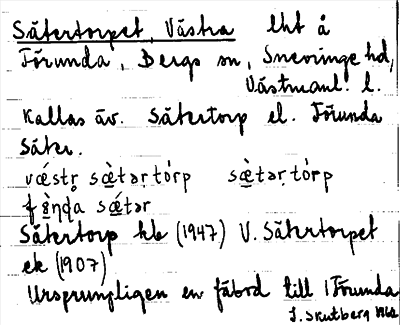 Sätertorpet, Västra lht å
Förunda, Bergs sn, Snevringe hd,
Västmanl. l.
Kallas äv. Sätertorp el. Förunda
Säter.
væ̀str̥ sæ̀tər̥tórp sæ̀tər̥tòrp
sǽtər
Sätertorp hb (1947) V. Sätertorpet
ek (1907)
Ursprungligen en fäbod till Förunda
J. Skutberg 1962